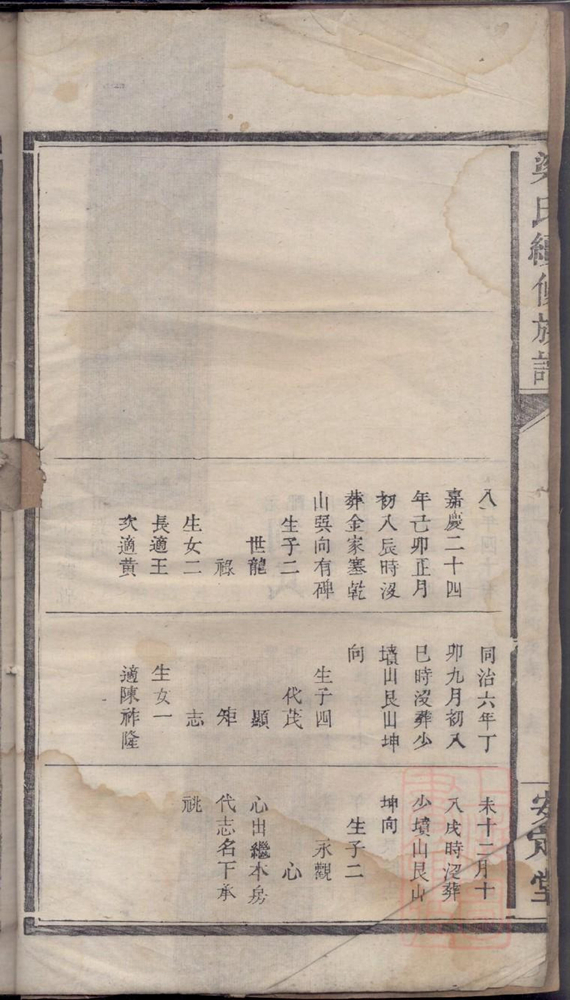 梁氏續修族譜
安定堂
八
嘉慶二十四
年己卯正月
初八辰時沒
葬金家塞乾
山巽向有碑
生子二
世龍
祿
生女二
長適王
次適黃
同治六年丁
卯九月初八
巳時沒葬少
墳山艮山坤
向
生子四
代茂
顯
矩
志
生女一
適陳祚隆
未十二月十
八戌時沒葬
少墳山艮山
坤向
生子二
永觀
心
心出繼本房
代志名下承
祧